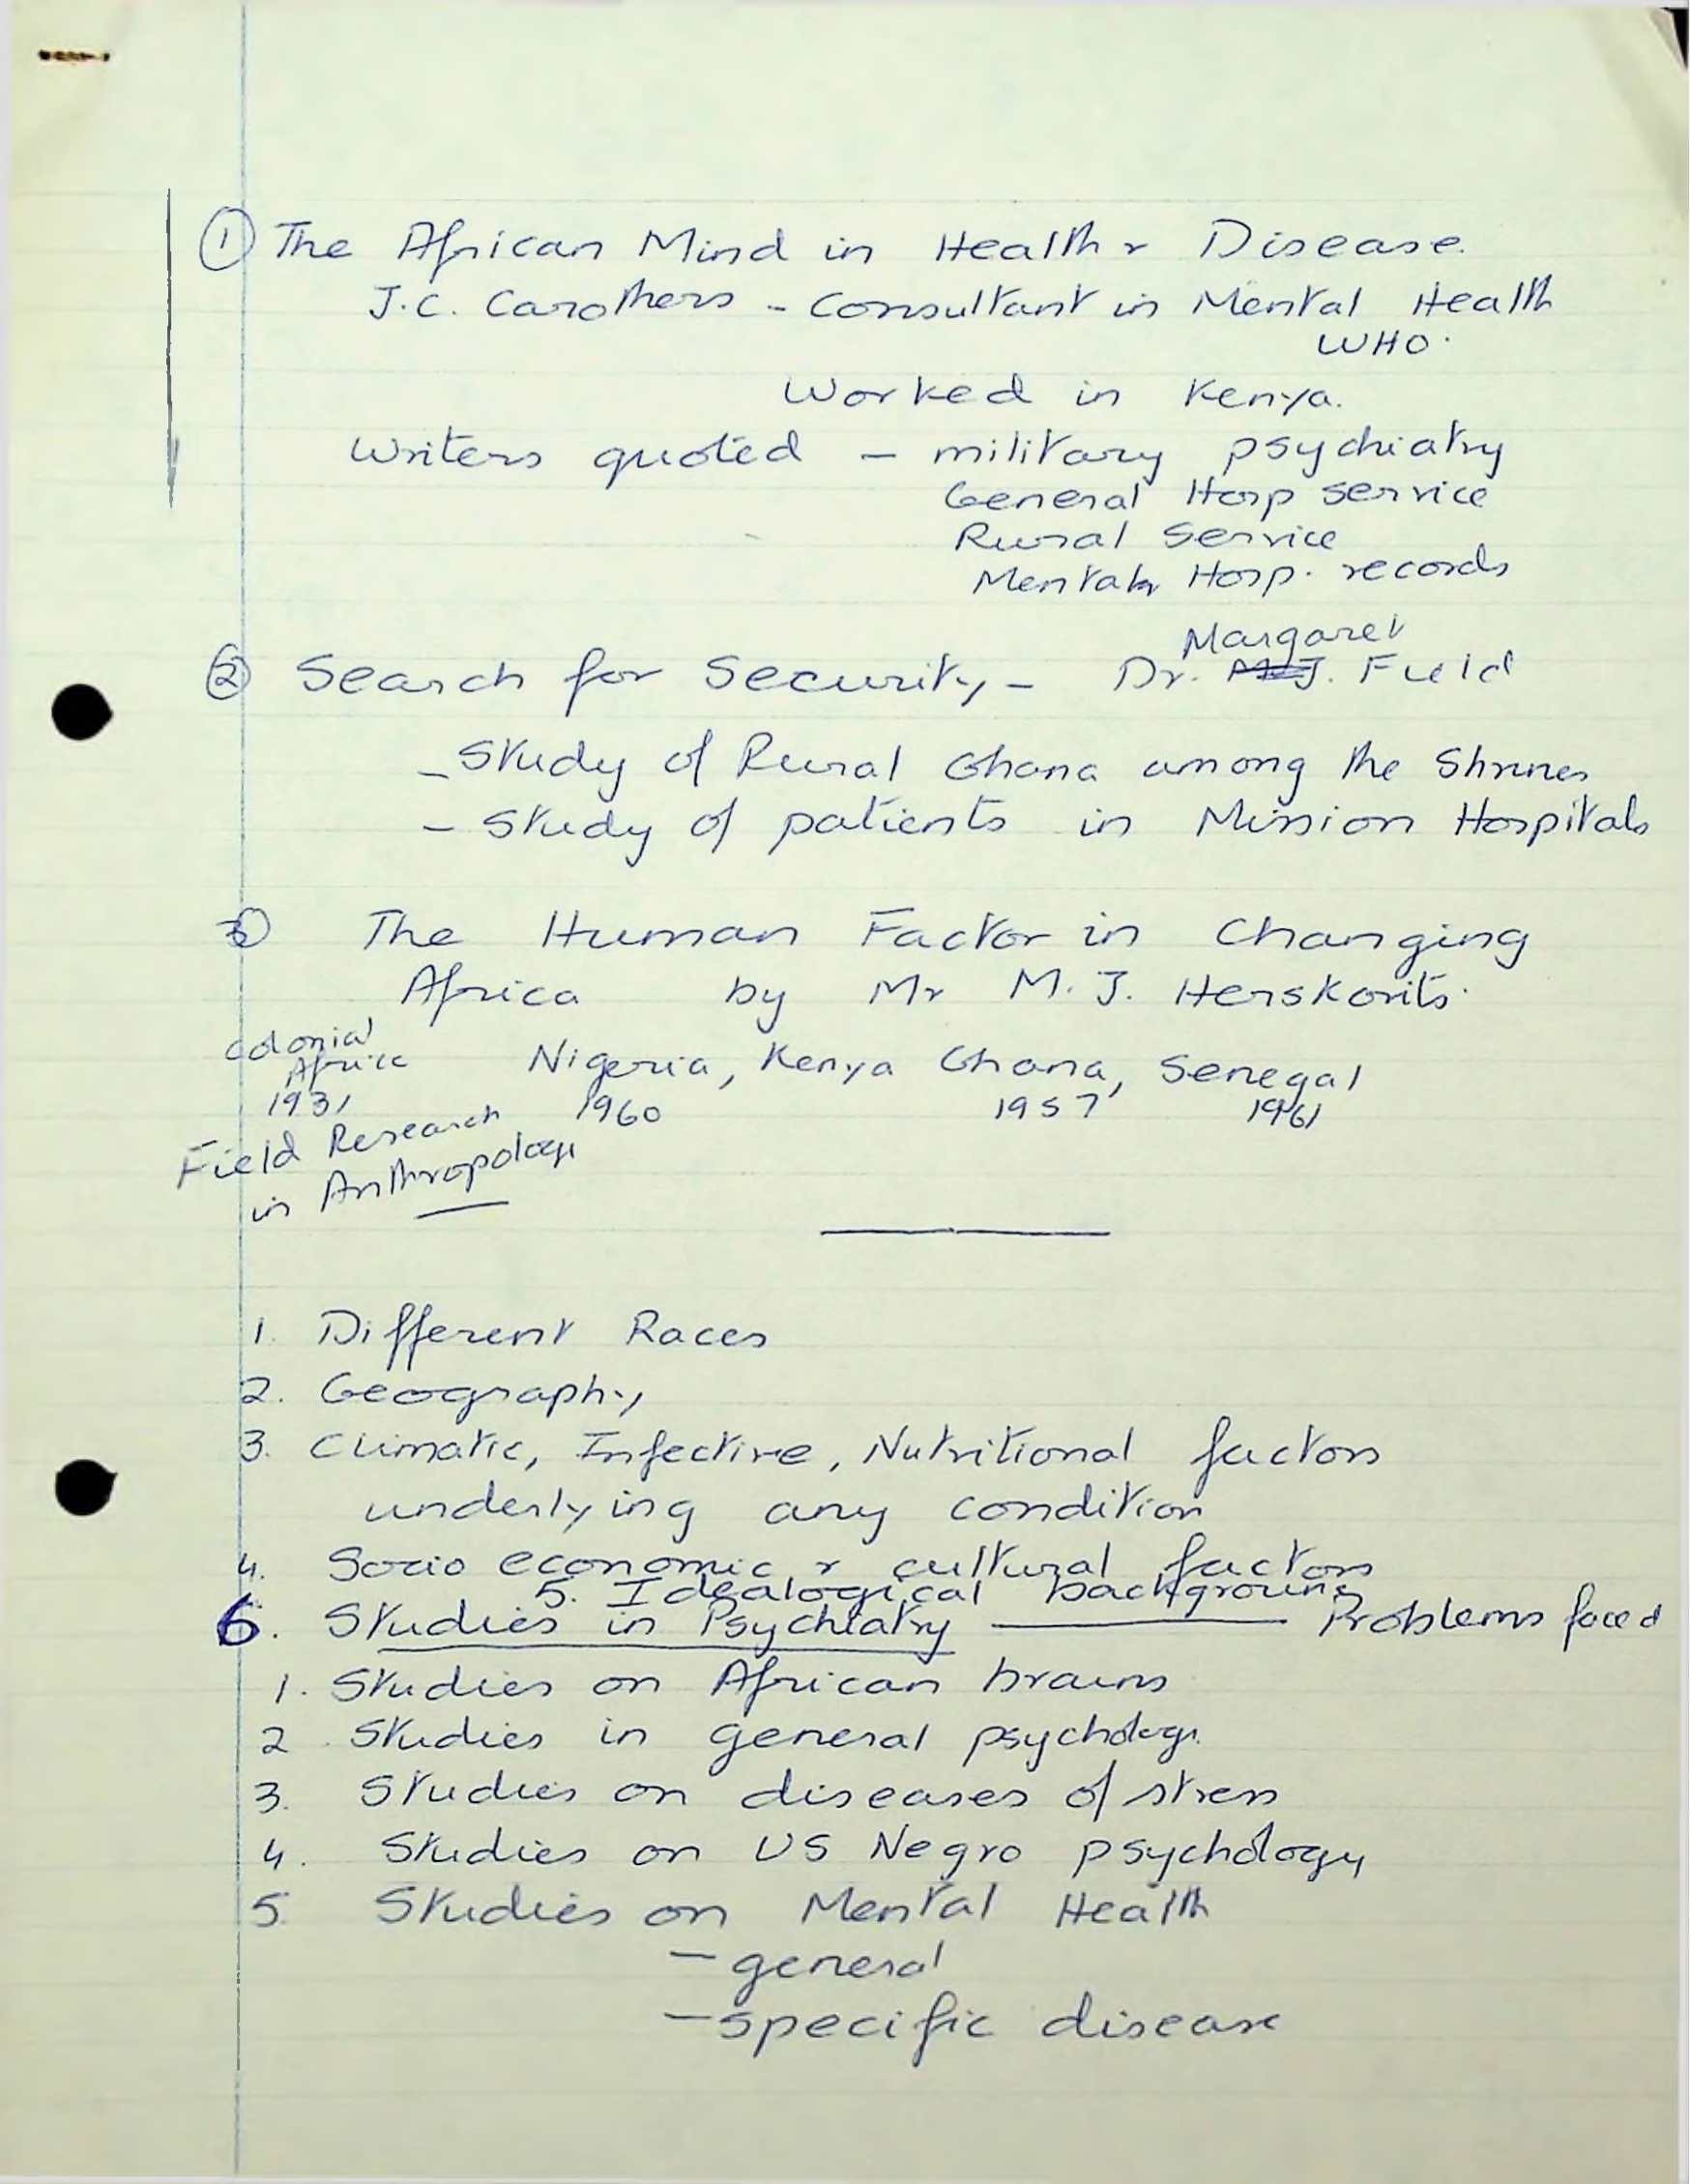 ① The African Mind in Health & Disease.
J.C. Carothers - Consultant in Mental Health
WHO.
Worked in Kenya.
Writers quoted - military psychiatry
General Hosp service
Rural Service
Mental Hosp. records
Margaret
② Search for Security - Dr. M.J. Field
- Study of Rural Ghana among the Shrines
- Study of patients in Mission Hospitals
③ The Human Factor in Changing
Africa by Mr M. J. Herskovits.
Colonial
Africa
Nigeria, Kenya Ghana, Senegal
1931 1960 1957 1961
Field Research
in Anthropology
1. Different Races
2. Geography
3. Climatic, Infective, Nutritional factors
underlying any condition
4. Socio economic & cultural factors
5. Idealogical background
6. Studies in Psychiatry — Problems faced
1. Studies on African brains
2. Studies in general psychology.
3. Studies on diseases of stress
4. Studies on US Negro psychology
5 Studies on Mental Health
- general
- specific disease